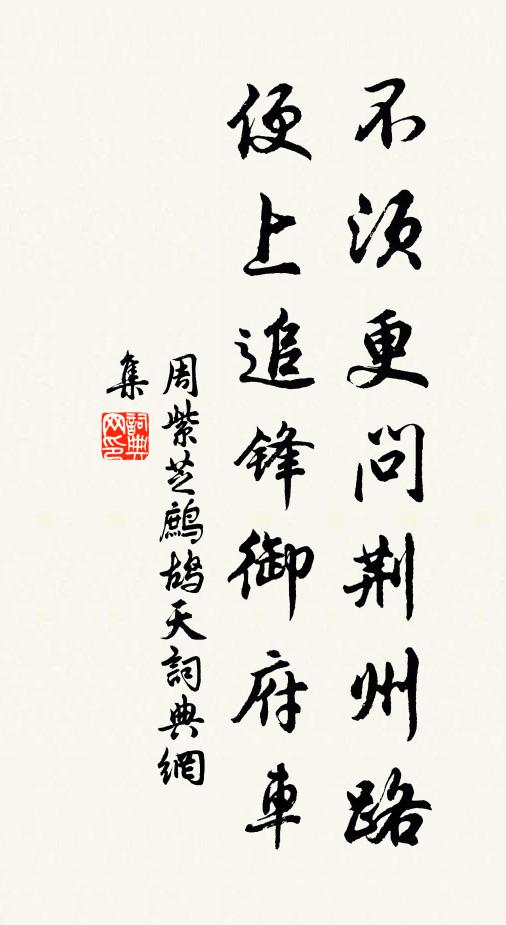 不須更問荆州路
便上追鋒御府車
周紫芝鷓鴣天詞典網
集
詞典
网印